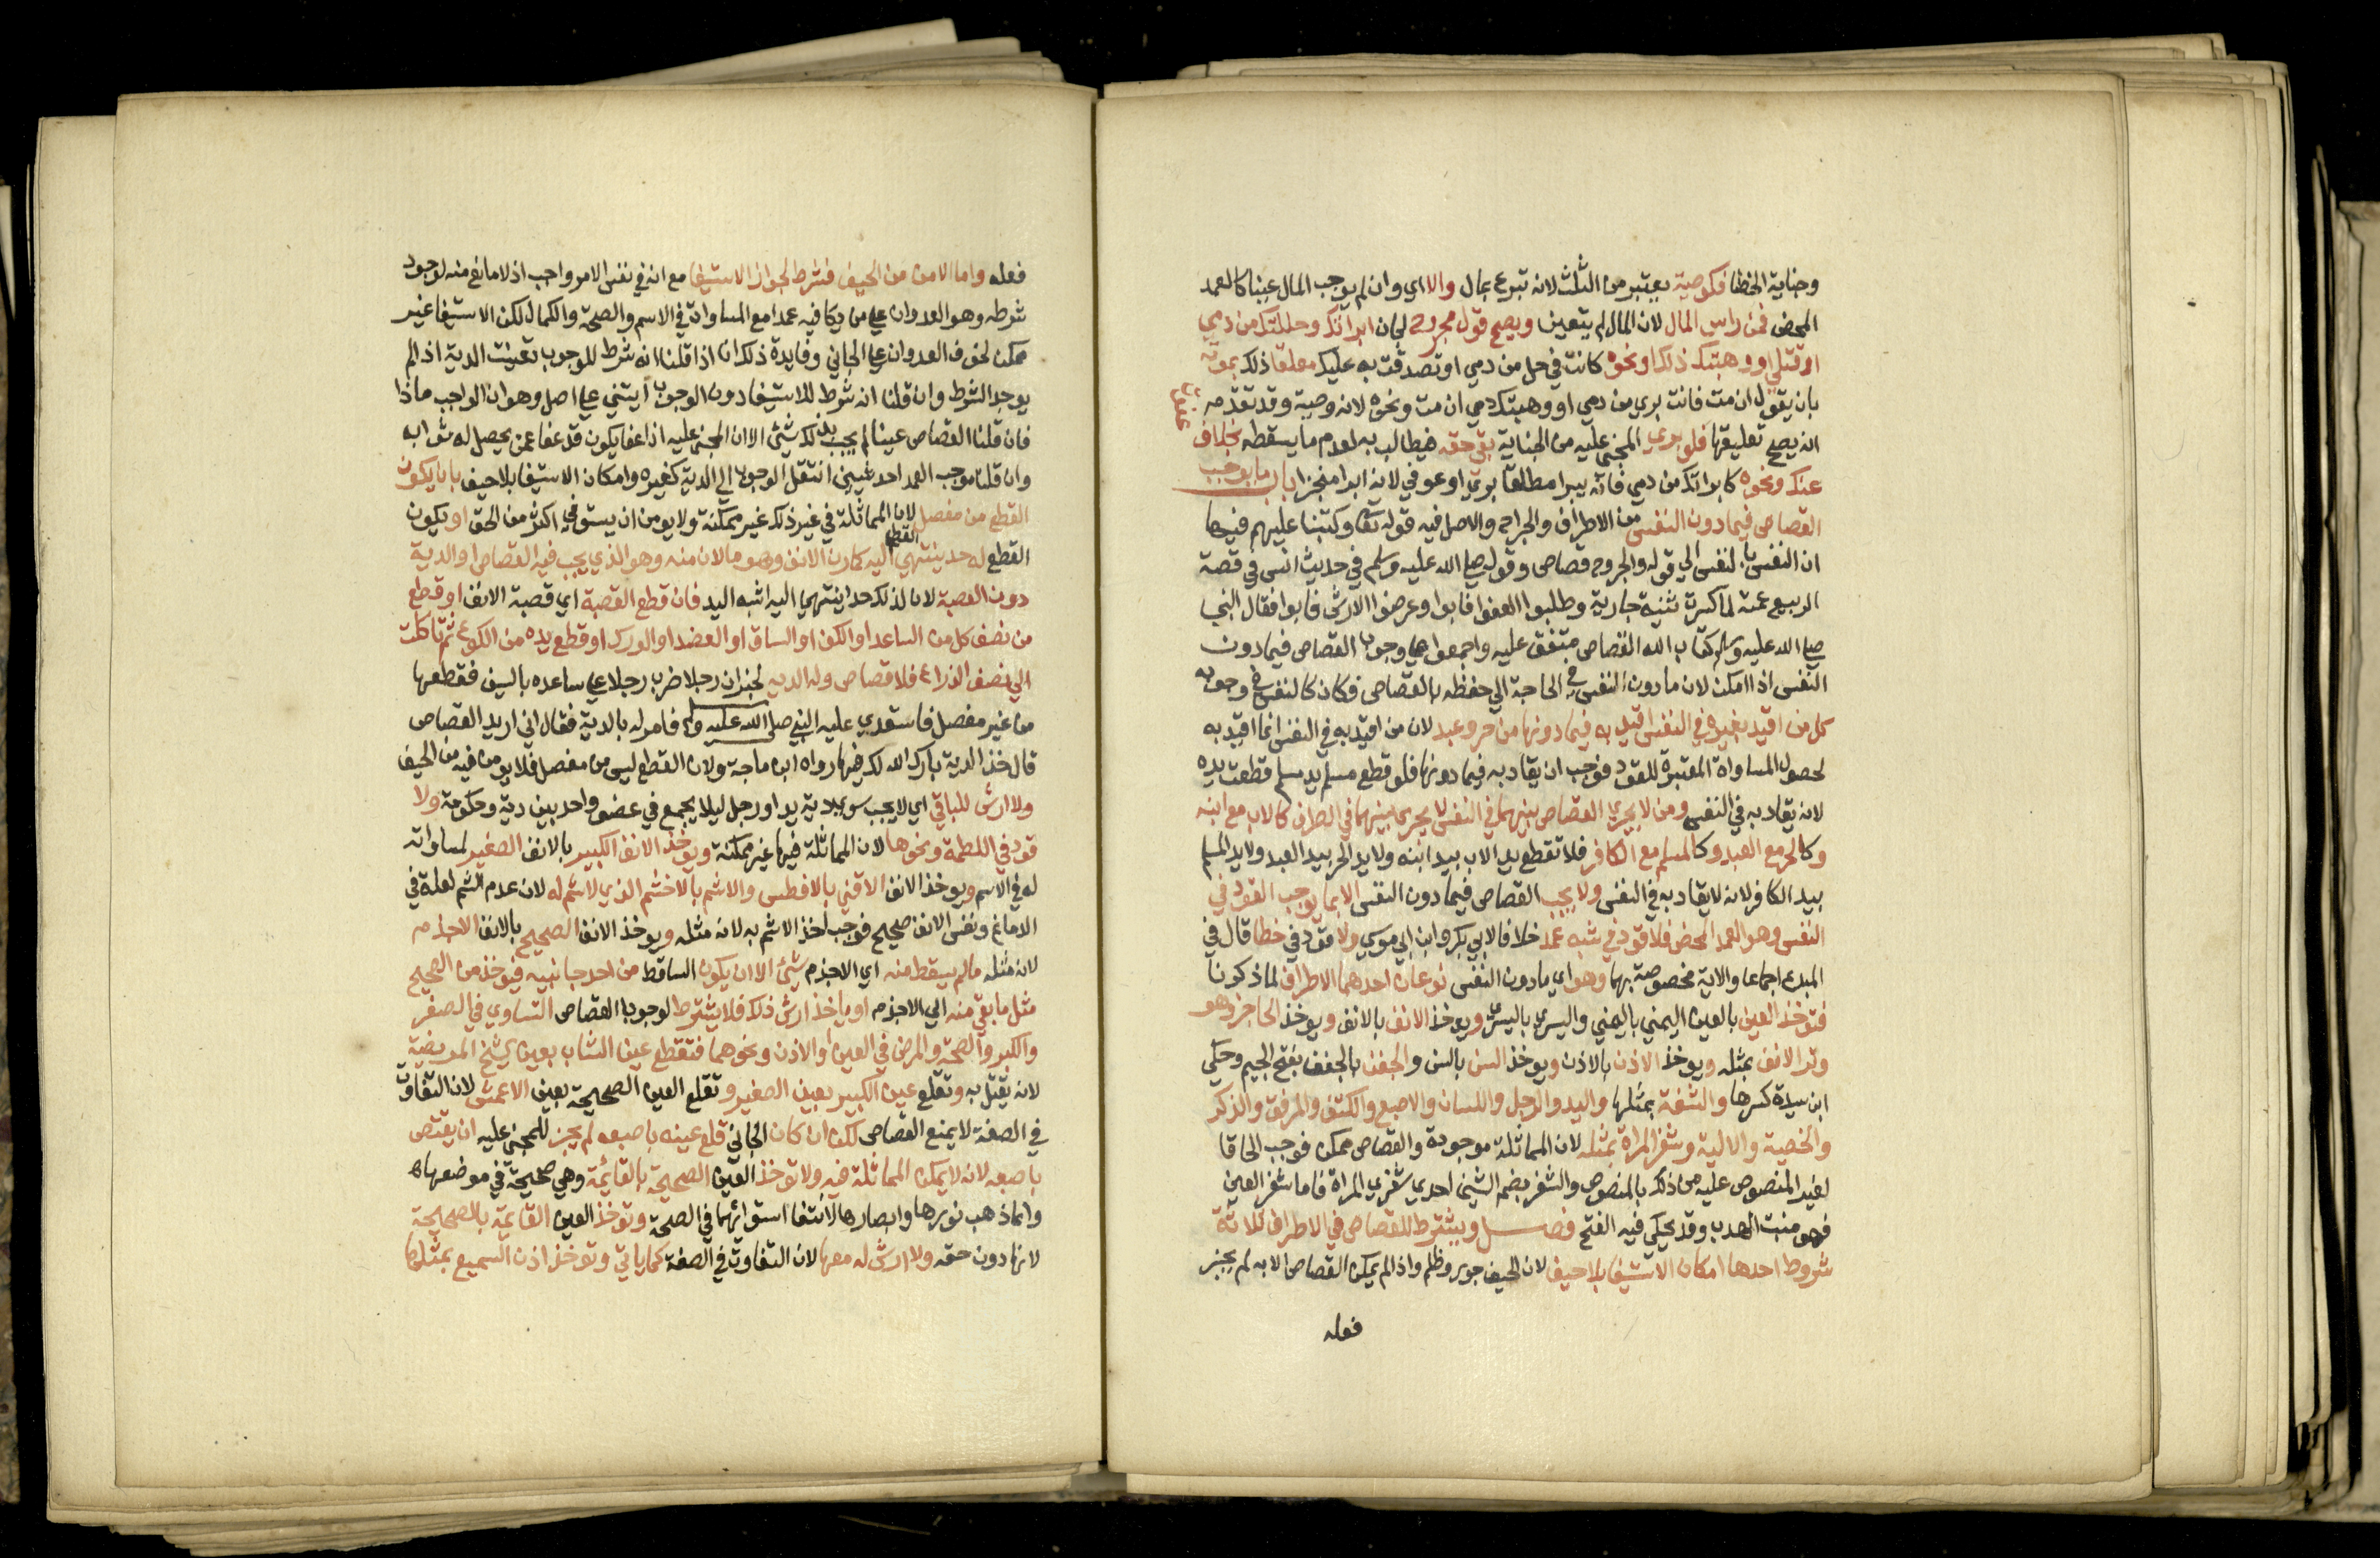 وجناية الخطا فكوصية يعتبر من الثلث لانه تبرع بمال والا اي وان لم يوجب المال عينا كالعمد
المحض فمن راس المال لان المال لم يتعين ويصح قول مجروح لجان ابراتك وحللتك من دمي
او قتلي او وهبتك ذلك او نحوه كانت في حل من دمي او تصدقت به عليك معلقا ذلك بموته
بان يقول ان مت فانت بري من دمي او وهبتك دمي ان مت ونحوه لانه وصية وقد تقدم
انه يصح تعليقها فلو بري المجني عليه من الجناية بقي حقه فيطالب به لعدم ما يسقطه بخلاف
عفوت
عنك ونحوه كابراتك من دمي فانه يبرا مطلقا بري او عوفي لانه ابرا منجز باب ما يوجب
القصاص فيما دون النفس من الاطراف والجراح والاصل فيه قوله تعا وكتبنا عليهم فيها
ان النفس بالنفس الي قوله والجروح قصاص وقوله صلي الله عليه وسلم في حديث انس في قصة
الربيع عمته لما كسرت ثنية جارية وطلبوا العفو فابوا وعرضوا الارش فابوا فقال النبي
صلي الله عليه وسلم كتاب الله القصاص متفق عليه واجمعوا علي وجوب القصاص فيما دون
النفس اذا امكن لان مادون النفس في الحاجة الي حفظه بالقصاص فكان كالنفس في وجوبه
كل من اقيد بغيره في النفس اقيد به فيما دونها من حر وعبد لان من اقيد به في النفس انما اقيد به
لحصول المساواة المعتبرة للقود فوجب ان يقاد به فيما دونها فلو قطع مسلم يد مسلم قطعت يده
لانه يقاد به في النفس ومن لا يجري القصاص بينهما في النفس لا يجري بينهما في الطرف كالاب مع ابنه
وكالحر مع العبد وكالمسلم مع الكافر فلا تقطع يد الاب بيد ابنه ولا يد الحر بيد العبد ولا يد المسلم
بيد الكافر لانه لا يقاد به في النفس ولا يجب القصاص فيما دون النفس الا بما يوجب القود في
النفس وهو العمد المحض فلا قود في شبه عمد خلافا لابي بكر وابن ابي موسي ولا قود في خطا قال في
المبدع اجماعا والاية مخصوصة بهما وهو اي ما دون النفس نوعان احدهما الاطراف لما ذكرنا
فتوخذ العين بالعين اليمني باليمني واليسري باليسري ويوخذ الانف بالانف ويوخذ الحاجز وهو
وتر الانف بمثله ويوخذ الاذن بالاذن ويوخذ السن بالسن والجفن بالجفن بفتح الجيم وحكي
ابن سيدة كسرها والشفة بمثلها واليد والرجل واللسان والاصبع والكتف والمرفق والذكر
والخصية والالية وشفر المراة بمثله لان المماثلة موجودة والقصاص ممكن فوجب الحاقا
لغير المنصوص عليه من ذلك بالمنصوص والشفر بضم الشين احدي شفري المراة فاما شفر العين
فهو منبت الهدب وقد يحكي فيه الفتح فصل ويشترط للقصاص في الاطراف ثلاثة
شروط احدها امكان الاستيفا بلا حيف لان الحيف جور وظلم واذا لم يمكن القصاص الا به لم يجز
فعله
فعله واما الامن من الحيف فشرط لجواز الاستيفا مع انه في نفس الامر واجب اذ لا مانع منه لوجود
شرطه وهو العدوان علي من يكافيه عمدا مع المساواة في الاسم والصحة والكمال لكن الاستيفا غير
ممكن لخوف العدوان علي الجاني وفايدة ذلك انا اذا قلنا انه شرط للوجوب تعينت الدية اذا لم
يوجد الشرط وان قلنا انه شرط للاستيفا دون الوجوب ابتني علي اصل وهو ان الواجب ماذا
فان قلنا القصاص عينا لم يجب بذلك شيئ الا ان المجني عليه اذا عفا يكون قد عفا عمن يحصل له ثوابه
وان قلنا موجب العمد احد شيئين انتقل الوجوب الي الدية كغيره وامكان الاستيفا بلا حيف بان يكون
القطع من مفصل لان المماثلة في غير ذلك غير ممكنة ولا يومن ان يستوفي اكثر من الحق او يكون
القطع له حد ينتهي القطع اليه كمارن الانف وهو ما لان منه وهو الذي يجب فيه القصاص او الدية
دون القصبة لان لذلك حدا ينتهي اليه اشبه اليد فان قطع القصبة اي قصبة الانف او قطع
من نصف كل من الساعد او الكف او الساق او العضد او الورك او قطع يده من الكوع ثم تاكلت
الي نصف الذراع فلا قصاص وله الديه لخبر ان رجلا ضرب رجلا علي ساعده بالسيف فقطعها
من غير مفصل فاستعدي عليه النبي صلي الله عليه وسلم فامر له بالدية فقال اني اريد القصاص
قال خذ الدية بارك الله لك فيها رواه ابن ماجة ولان القطع ليس من مفصل فلا يومن فيه من الحيف
ولا ارش للباقي اي لا يجب سوي دية يد او رجل ليلا يجمع في عضو واحد بين دية وحكومة ولا
قود في اللطمة ونحوها لان المماثلة فيها غير ممكنة ويوخذ الانف الكبير بالانف الصغير لمساواته
له في الاسم ويوخذ الانف الاقني بالافطس والاشم بالاخشم الذي لا شم له لان عدم الشم لعلة في
الدماغ ونفس الانف صحيح فوجب اخذ الاشم به لانه مثله ويوخذ الانف الصحيح بالانف الاجذم
لانه مثله مالم يسقط منه اي الاجذم شيئ الا ان يكون الساقط من احد جانبيه فيوخذ من الصحيح
مثل ما بقي منه الي الاجذم او ياخذ ارش ذلك فلا يشترط لوجوب القصاص التساوي في الصغر
والكبر والصحة والمرض في العين او الاذن ونحوهما فتقطع عين الشاب بعين شيخ المريضة
لانه يقتل به وتقلع عين الكبير بعين الصغير وتقلع العين الصحيحة بعين الاعمش لان التفاوت
في الصفة لا يمنع القصاص لكن ان كان الجاني قلع عينه باصبعه لم يجز للمجني عليه ان يقتص
باصبعه لانه لا يمكن المماثلة فيه ولا توخذ العين الصحيحة بالقايمة وهي صحيحة في موضعها
وانما ذهب نورها وابصارها لانتفا استوائهما في الصحة وتوخذ العين القايمة بالصحيحة
لانها دون حقه ولا ارش له معها لان التفاوت في الصفة كما ياتي وتوخذ اذن السميع بمثلها